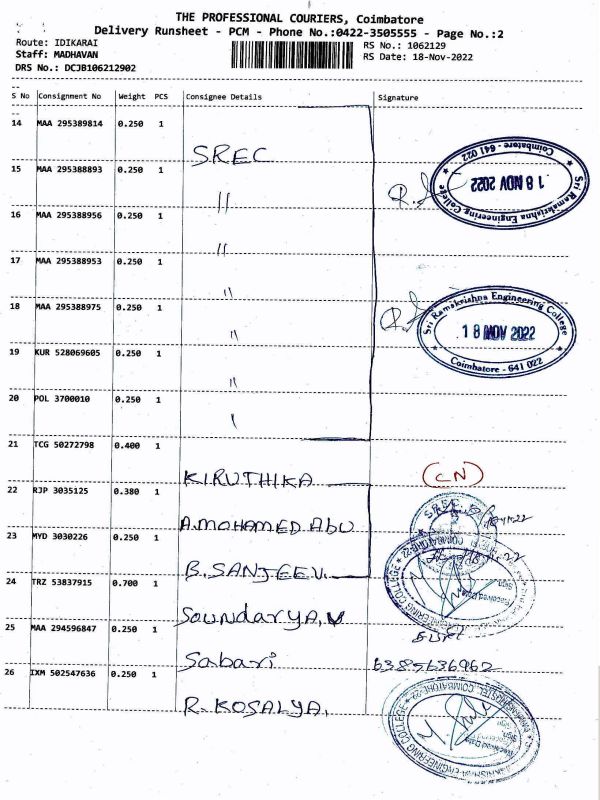 THE PROFESSIONAL COURIERS, Coimbatore
Delivery Runsheet - PCM - Phone No.:0422-3505555 - Page No.:2
Route: IDIKARAI
RS No.: 1062129
Staff: MADHAVAN
RS Date: 18-Nov-2022
DRS No.: DCJB106212902
S No Consignment No Weight PCS Consignee Details Signature
14 MAA 295389814 0.250 1
SREC
15 MAA 295388893 0.250 1
"
Sri Ramakrishna Engineering College
18 NOV 2022
Coimbatore - 641 022
16 MAA 295388956 0.250 1
"
17 MAA 295388953 0.250 1
"
18 MAA 295388975 0.250 1
"
Sri Ramakrishna Engineering College
18 NOV 2022
Coimbatore - 641 022
19 KUR 528069605 0.250 1
"
20 POL 3700010 0.250 1
21 TCG 50272798 0.400 1
KIRUTHIKA (CN)
22 RJP 3035125 0.380 1
A.MOHAMED Abu
SREC
23 MYD 3030226 0.250 1
B.SANJEEV.
ENGINEERING COLLEGE
24 TRZ 53837915 0.700 1
SoundarYA.V
25 MAA 294596847 0.250 1
Sabari 6385636962
26 IXM 502547636 0.250 1
R.KOSALYA.
ENGINEERING COLLEGE